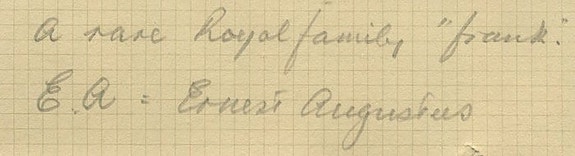 A rare Royal family "frank".
E.A = Ernest Augustus